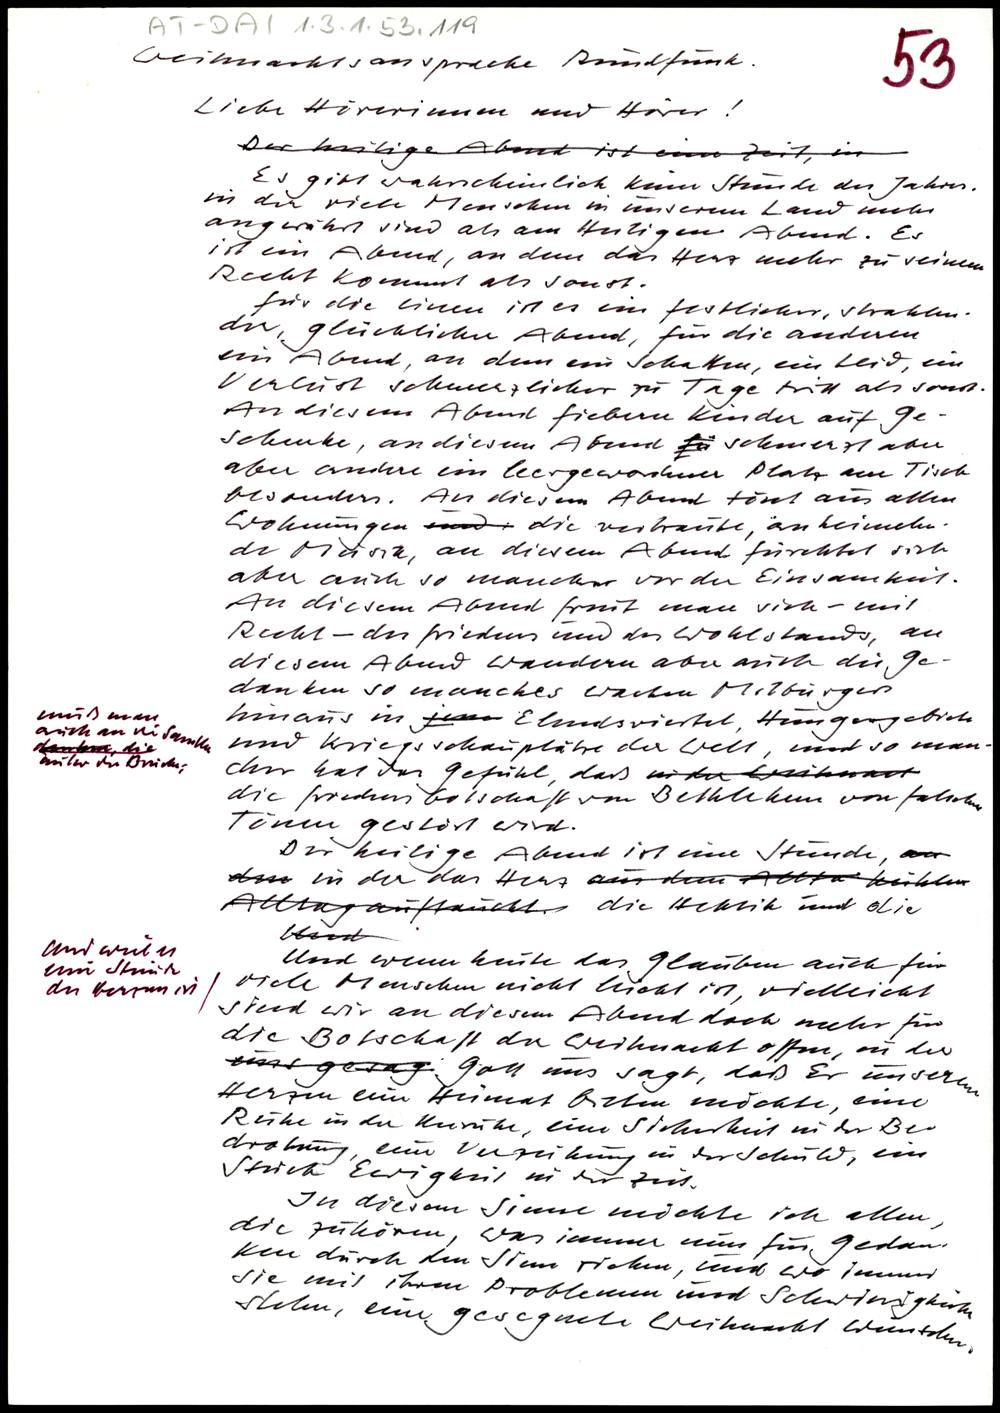 AT-DAI 1.3.1.53.119
53
Weihnachtsansprache Rundfunk.
Liebe Hörerinnen und Hörer!
Der heilige Abend ist eine Zeit, in
Es gibt wahrscheinlich keine Stunde des Jahres,
in der viele Menschen in unserem Land mehr
angerührt sind als am Heiligen Abend. Es
ist ein Abend, an dem das Herz mehr zu seinem
Recht kommt als sonst.
Für die einen ist es ein festlicher, strahlen-
der, glücklicher Abend, für die anderen
ein Abend, an dem ein Schatten, ein Leid, ein
Verlust schmerzlicher zu Tage tritt als sonst.
An diesem Abend fiebern Kinder auf Ge-
schenke, an diesem Abend fü schmerzt aber
aber andere ein leergewordener Platz am Tisch
besonders. An diesem Abend tönt aus allen
Wohnungen und die vertraute, anheimeln-
de Musik, an diesem Abend fürchtet sich
aber auch so mancher vor der Einsamkeit.
An diesem Abend freut man sich – mit
Recht – des Friedens und des Wohlstands, an
diesem Abend wandern aber auch die Ge-
danken so manches wachen Mitbürgers
hinaus in jene Elendsviertel, Hungergebiete
und Kriegsschauplätze der Welt, und so man-
cher hat das Gefühl, daß in der Weihnact
die Friedensbotschaft von Bethlehem von falschen
Tönen gestört wird.
muß man
auch an die Sandler
denken, die
unter der Brücke,
Der heilige Abend ist eine Stunde, an
dem in der das Herz aus dem Allta kühlen
Alltag auftaucht. die Hektik und die
Und
Und weil es
eine Stunde
des Herzens ist /
Und wenn heute das Glauben auch für
viele Menschen nicht leicht ist, vielleicht
sind wir an diesem Abend doch mehr für
die Botschaft der Weihnacht offen, in der
uns gesag. Gott uns sagt, daß Er unserem
Herzen eine Heimat bieten möchte, eine
Ruhe in der Unruhe, eine Sicherheit in der Be-
drohung, eine Verzeihung in der Schuld, ein
Stück Ewigkeit in der Zeit.
In diesem Sinne möchte ich allen,
die zuhören, was immer nun für Gedan-
ken durch den Sinn ziehen, und wo immer
sie mit ihren Problemen und Schwierigkeiten
stehen, eine gesegnete Weihnacht wünschen.